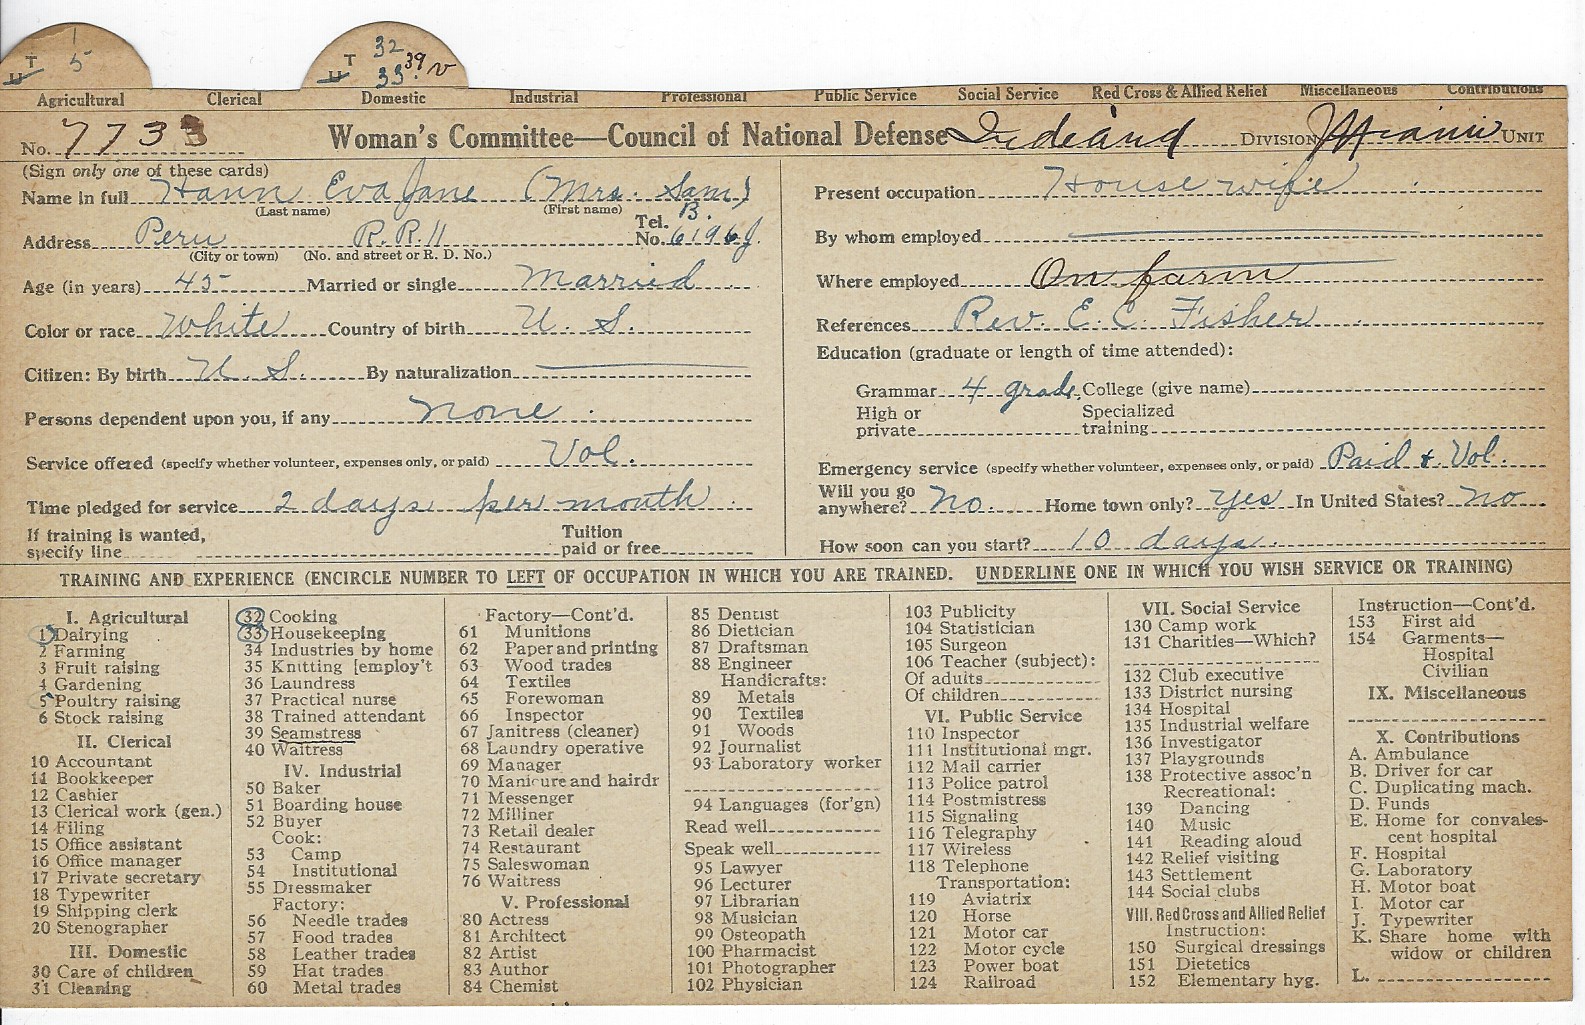 1
T 5
U
32
T 39 v
U 33
Agricultural Clerical Domestic Industrial Professional Public Service Social Service Red Cross & Allied Relief Miscellaneous Contributions
No. 7733 Woman's Committee—Council of National Defense Indiana DIVISION Miami UNIT
(Sign only one of these cards)
Name in full Hann Eva Jane (Mrs. Sam)
(Last name) (First name)
B.
Address Peru R.R. 11 Tel. No. 6196 J.
(City or town) (No. and street or R. D. No.)
Age (in years) 45 Married or single Married
Color or race White Country of birth U. S.
Citizen: By birth U. S. By naturalization
Persons dependent upon you, if any none
Service offered (specify whether volunteer, expenses only, or paid) Vol.
Time pledged for service 2 days per month
If training is wanted, specify line Tuition paid or free
Present occupation House wife
By whom employed
Where employed On farm
References Rev. E. C. Fisher
Education (graduate or length of time attended):
Grammar 4 grade College (give name)
High or private Specialized training
Emergency service (specify whether volunteer, expenses only, or paid) Paid & Vol.
Will you go anywhere? No. Home town only? Yes In United States? No
How soon can you start? 10 days.
TRAINING AND EXPERIENCE (ENCIRCLE NUMBER TO LEFT OF OCCUPATION IN WHICH YOU ARE TRAINED. UNDERLINE ONE IN WHICH YOU WISH SERVICE OR TRAINING)
I. Agricultural
1 Dairying
2 Farming
3 Fruit raising
4 Gardening
5 Poultry raising
6 Stock raising
II. Clerical
10 Accountant
11 Bookkeeper
12 Cashier
13 Clerical work (gen.)
14 Filing
15 Office assistant
16 Office manager
17 Private secretary
18 Typewriter
19 Shipping clerk
20 Stenographer
III. Domestic
30 Care of children
31 Cleaning
32 Cooking
33 Housekeeping
34 Industries by home
35 Knitting [employ't
36 Laundress
37 Practical nurse
38 Trained attendant
39 Seamstress
40 Waitress
IV. Industrial
50 Baker
51 Boarding house
52 Buyer
Cook:
53 Camp
54 Institutional
55 Dressmaker
Factory:
56 Needle trades
57 Food trades
58 Leather trades
59 Hat trades
60 Metal trades
Factory—Cont'd.
61 Munitions
62 Paper and printing
63 Wood trades
64 Textiles
65 Forewoman
66 Inspector
67 Janitress (cleaner)
68 Laundry operative
69 Manager
70 Manicure and hairdr
71 Messenger
72 Milliner
73 Retail dealer
74 Restaurant
75 Saleswoman
76 Waitress
V. Professional
80 Actress
81 Architect
82 Artist
83 Author
84 Chemist
85 Dentist
86 Dietician
87 Draftsman
88 Engineer
Handicrafts:
89 Metals
90 Textiles
91 Woods
92 Journalist
93 Laboratory worker
94 Languages (for'gn)
Read well
Speak well
95 Lawyer
96 Lecturer
97 Librarian
98 Musician
99 Osteopath
100 Pharmacist
101 Photographer
102 Physician
103 Publicity
104 Statistician
105 Surgeon
106 Teacher (subject):
Of adults
Of children
VI. Public Service
110 Inspector
111 Institutional mgr.
112 Mail carrier
113 Police patrol
114 Postmistress
115 Signaling
116 Telegraphy
117 Wireless
118 Telephone
Transportation:
119 Aviatrix
120 Horse
121 Motor car
122 Motor cycle
123 Power boat
124 Railroad
VII. Social Service
130 Camp work
131 Charities—Which?
132 Club executive
133 District nursing
134 Hospital
135 Industrial welfare
136 Investigator
137 Playgrounds
138 Protective assoc'n
Recreational:
139 Dancing
140 Music
141 Reading aloud
142 Relief visiting
143 Settlement
144 Social clubs
VIII. Red Cross and Allied Relief
Instruction:
150 Surgical dressings
151 Dietetics
152 Elementary hyg.
Instruction—Cont'd.
153 First aid
154 Garments—
Hospital
Civilian
IX. Miscellaneous
X. Contributions
A. Ambulance
B. Driver for car
C. Duplicating mach.
D. Funds
E. Home for convales-
cent hospital
F. Hospital
G. Laboratory
H. Motor boat
I. Motor car
J. Typewriter
K. Share home with
widow or children
L.